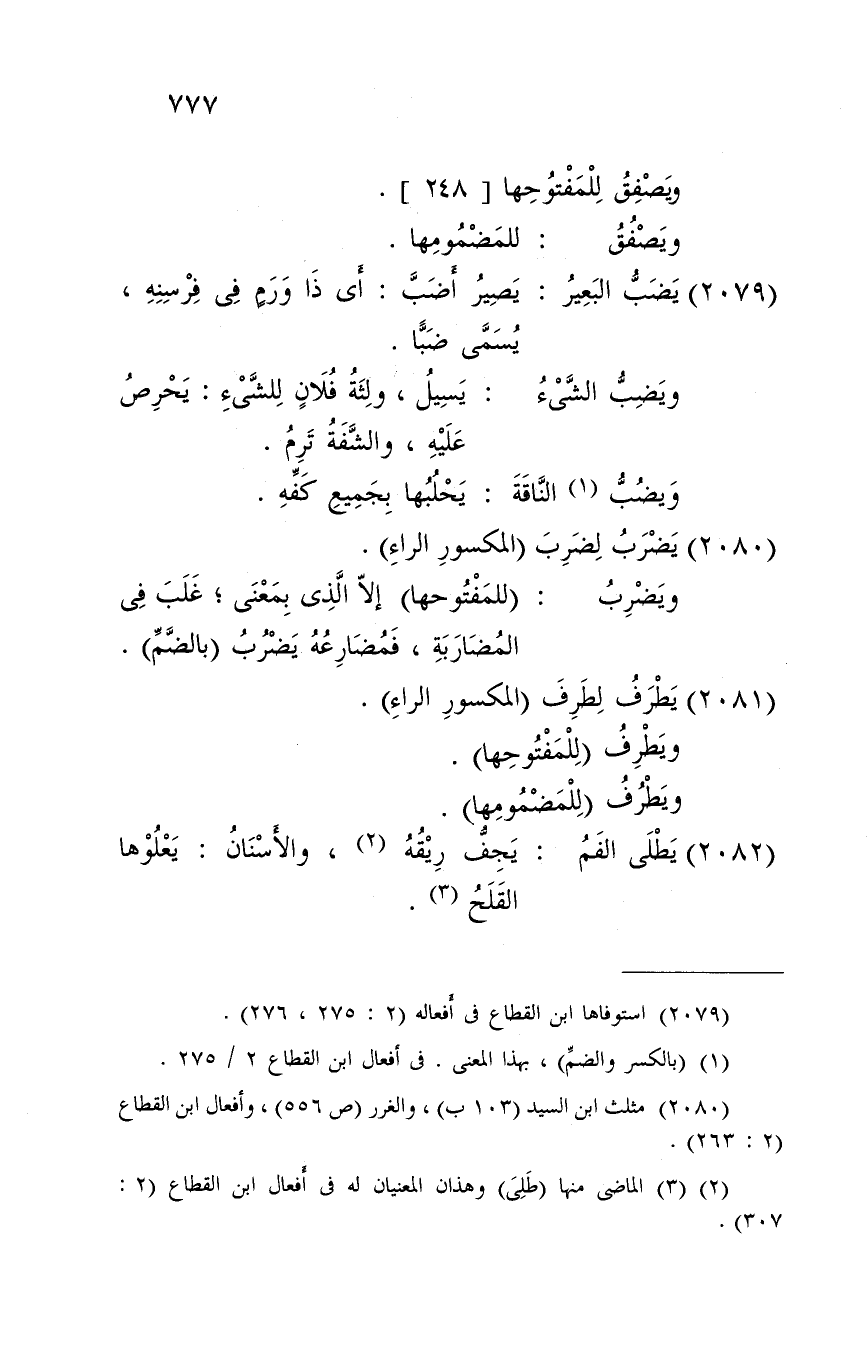 ٧٧٧
ويَصْفِقُ لِلْمَفْتوُحِها [ ٢٤٨ ] .
ويَصْفُقُ : للمَضْمُومِها .
(٢٠٧٩) يَضَبُّ البَعِيرُ : يَصِيرُ أَضَبَّ : أَى ذَا وَرَمٍ فِى فِرْسِنِهِ ،
يُسَمَّى ضَبًّا .
ويَضِبُّ الشَّىْءُ : يَسِيلُ ، ولِثَةُ فُلَانٍ لِلشَّىْءِ : يَحْرِصُ
عَلَيْهِ ، والشَّفَةُ تَرِمُ .
وَيضُبُّ (١) النَّاقَةَ : يَحْلُبُها بِجَمِيعِ كَفِّهِ .
(٢٠٨٠) يَضْرَبُ لِضَرِبَ (المكسورِ الراءِ) .
ويَضْرِبُ : (للمَفْتُوحها) إلاّ الَّذِى بِمَعْنَى ؛ غَلَبَ فِى
المُضَارَبَةِ ، فَمُضَارِعُهُ يَضْرُبُ (بالضَّمِّ) .
(٢٠٨١) يَطْرَفُ لِطَرِفَ (المكسورِ الراءِ) .
ويَطْرِفُ (لِلْمَفْتُوحِها) .
ويَطْرُفُ (لِلْمَضْمُومِها) .
(٢٠٨٢) يَطْلَى الفَمُ : يَجِفُّ رِيْقُهُ (٢) ، والأَسْنَانُ : يَعْلُوْها
القَلَحُ (٣) .
(٢٠٧٩) استوفاها ابن القطاع فى أَفعاله (٢ : ٢٧٥ ، ٢٧٦) .
(١) (بالكسر والضمِّ) ، بهذا المعنى . فى أفعال ابن القطاع ٢ / ٢٧٥ .
(٢٠٨٠) مثلث ابن السيد (١٠٣ ب) ، والغرر (ص ٥٥٦) ، وأفعال ابن القطاع
(٢ : ٢٦٣) .
(٢) (٣) الماضى منها (طَلِىَ) وهذان المعنيان له فى أَفعال ابن القطاع (٢ :
٣٠٧) .